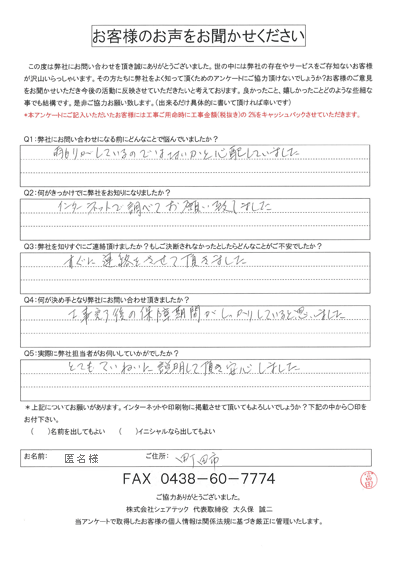 お客様のお声をお聞かせください
この度は弊社にお問い合わせを頂き誠にありがとうございました。世の中には弊社の存在やサービスをご存知ないお客様
が沢山いらっしゃいます。その方たちに弊社をよく知って頂くためのアンケートにご協力頂けないでしょうか?お客様のご意見
をお聞かせいただき今後の活動に反映させていただきたいと考えております。良かったこと、嬉しかったことどのような些細な
事でも結構です。是非ご協力お願い致します。(出来るだけ具体的に書いて頂ければ幸いです)
*本アンケートにご記入いただいたお客様には工事ご用命時に工事金額(税抜き)の2%をキャッシュバックさせていただきます。
Q1:弊社にお問い合わせになる前にどんなことで悩んでいましたか?
雨もりがしているのではないかと心配していました
Q2:何がきっかけでに弊社をお知りになりましたか?
インターネットで調べてお願い致しました
Q3:弊社を知りすぐにご連絡頂けましたか?もしご決断されなかったとしたらどんなことがご不安でしたか?
すぐに連絡をさせて頂きました
Q4:何が決め手となり弊社にお問い合わせ頂きましたか?
工事完了後の保障期間がしっかりしていると思いました
Q5:実際に弊社担当者がお伺いしていかがでしたか?
とてもていねいに説明して頂き安心しました
*上記についてお願いがあります。インターネットや印刷物に掲載させて頂いてもよろしいでしょうか?下記の中から〇印を
お付下さい。
( )名前を出してもよい ( )イニシャルなら出してもよい
お名前: 匿名様 ご住所: 町田市
FAX 0438-60-7774
ご協力ありがとうございました。
株式会社シェアテック 代表取締役 大久保 誠二
当アンケートで取得したお客様の個人情報は関係法規に基づき厳正に管理いたします。